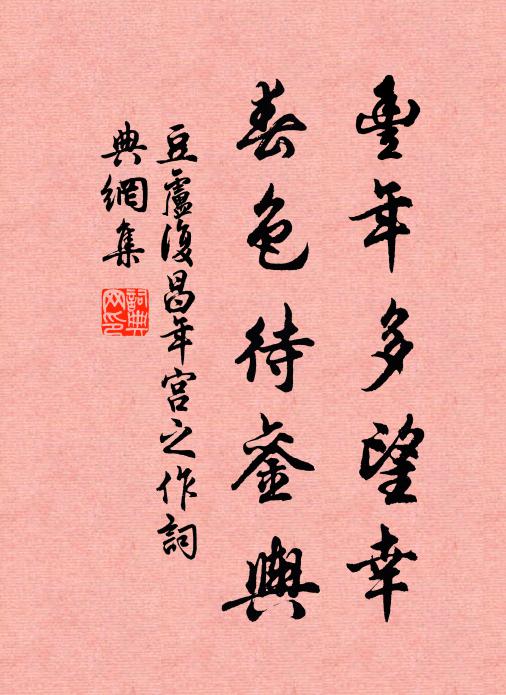 豐年多望幸
春色待鑾輿
豆盧復昌年宮之作詞
典網集
詞典網印